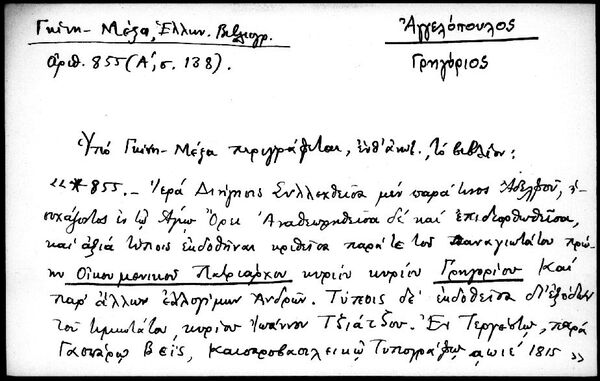 Γκίνη - Μέξα, Ἑλλην. Βιβλιογρ.
ἀριθ. 855 (Α', σ. 138).
Ἀγγελόπουλος
Γρηγόριος
Ὑπό Γκίνη - Μέξα περιγράφεται, ἐνθ' ἀνωτ., τό βιβλίον:
«*855. - Ἱερά Διήγησις Συλλεχθεῖσα μέν παρά τινος Ἀδελφοῦ, ἡ-
συχάζοντος ἐν τῷ Ἁγίῳ Ὄρει Ἀναθεωρηθεῖσα δέ καί ἐπιδιορθωθεῖσα,
καί ἀξία τύποις ἐκδοθῆναι κριθεῖσα παρά τε τοῦ παναγιωτάτου πρώ-
ην Οἰκουμενικοῦ Πατριάρχου κυρίου κυρίου Γρηγορίου Καί
παρ' ἄλλων ἐλλογίμων Ἀνδρῶν. Τύποις δέ ἐκδοθεῖσα δι' ἐξόδων
τοῦ τιμιωτάτου κυρίου Ἰωάννου Τζιάτζου. Ἐν Τεργέστῳ, παρά
Γασπάρῳ Βεῖς, Καισαροβασιλικῷ Τυπογράφῳ αωιε' 1815»